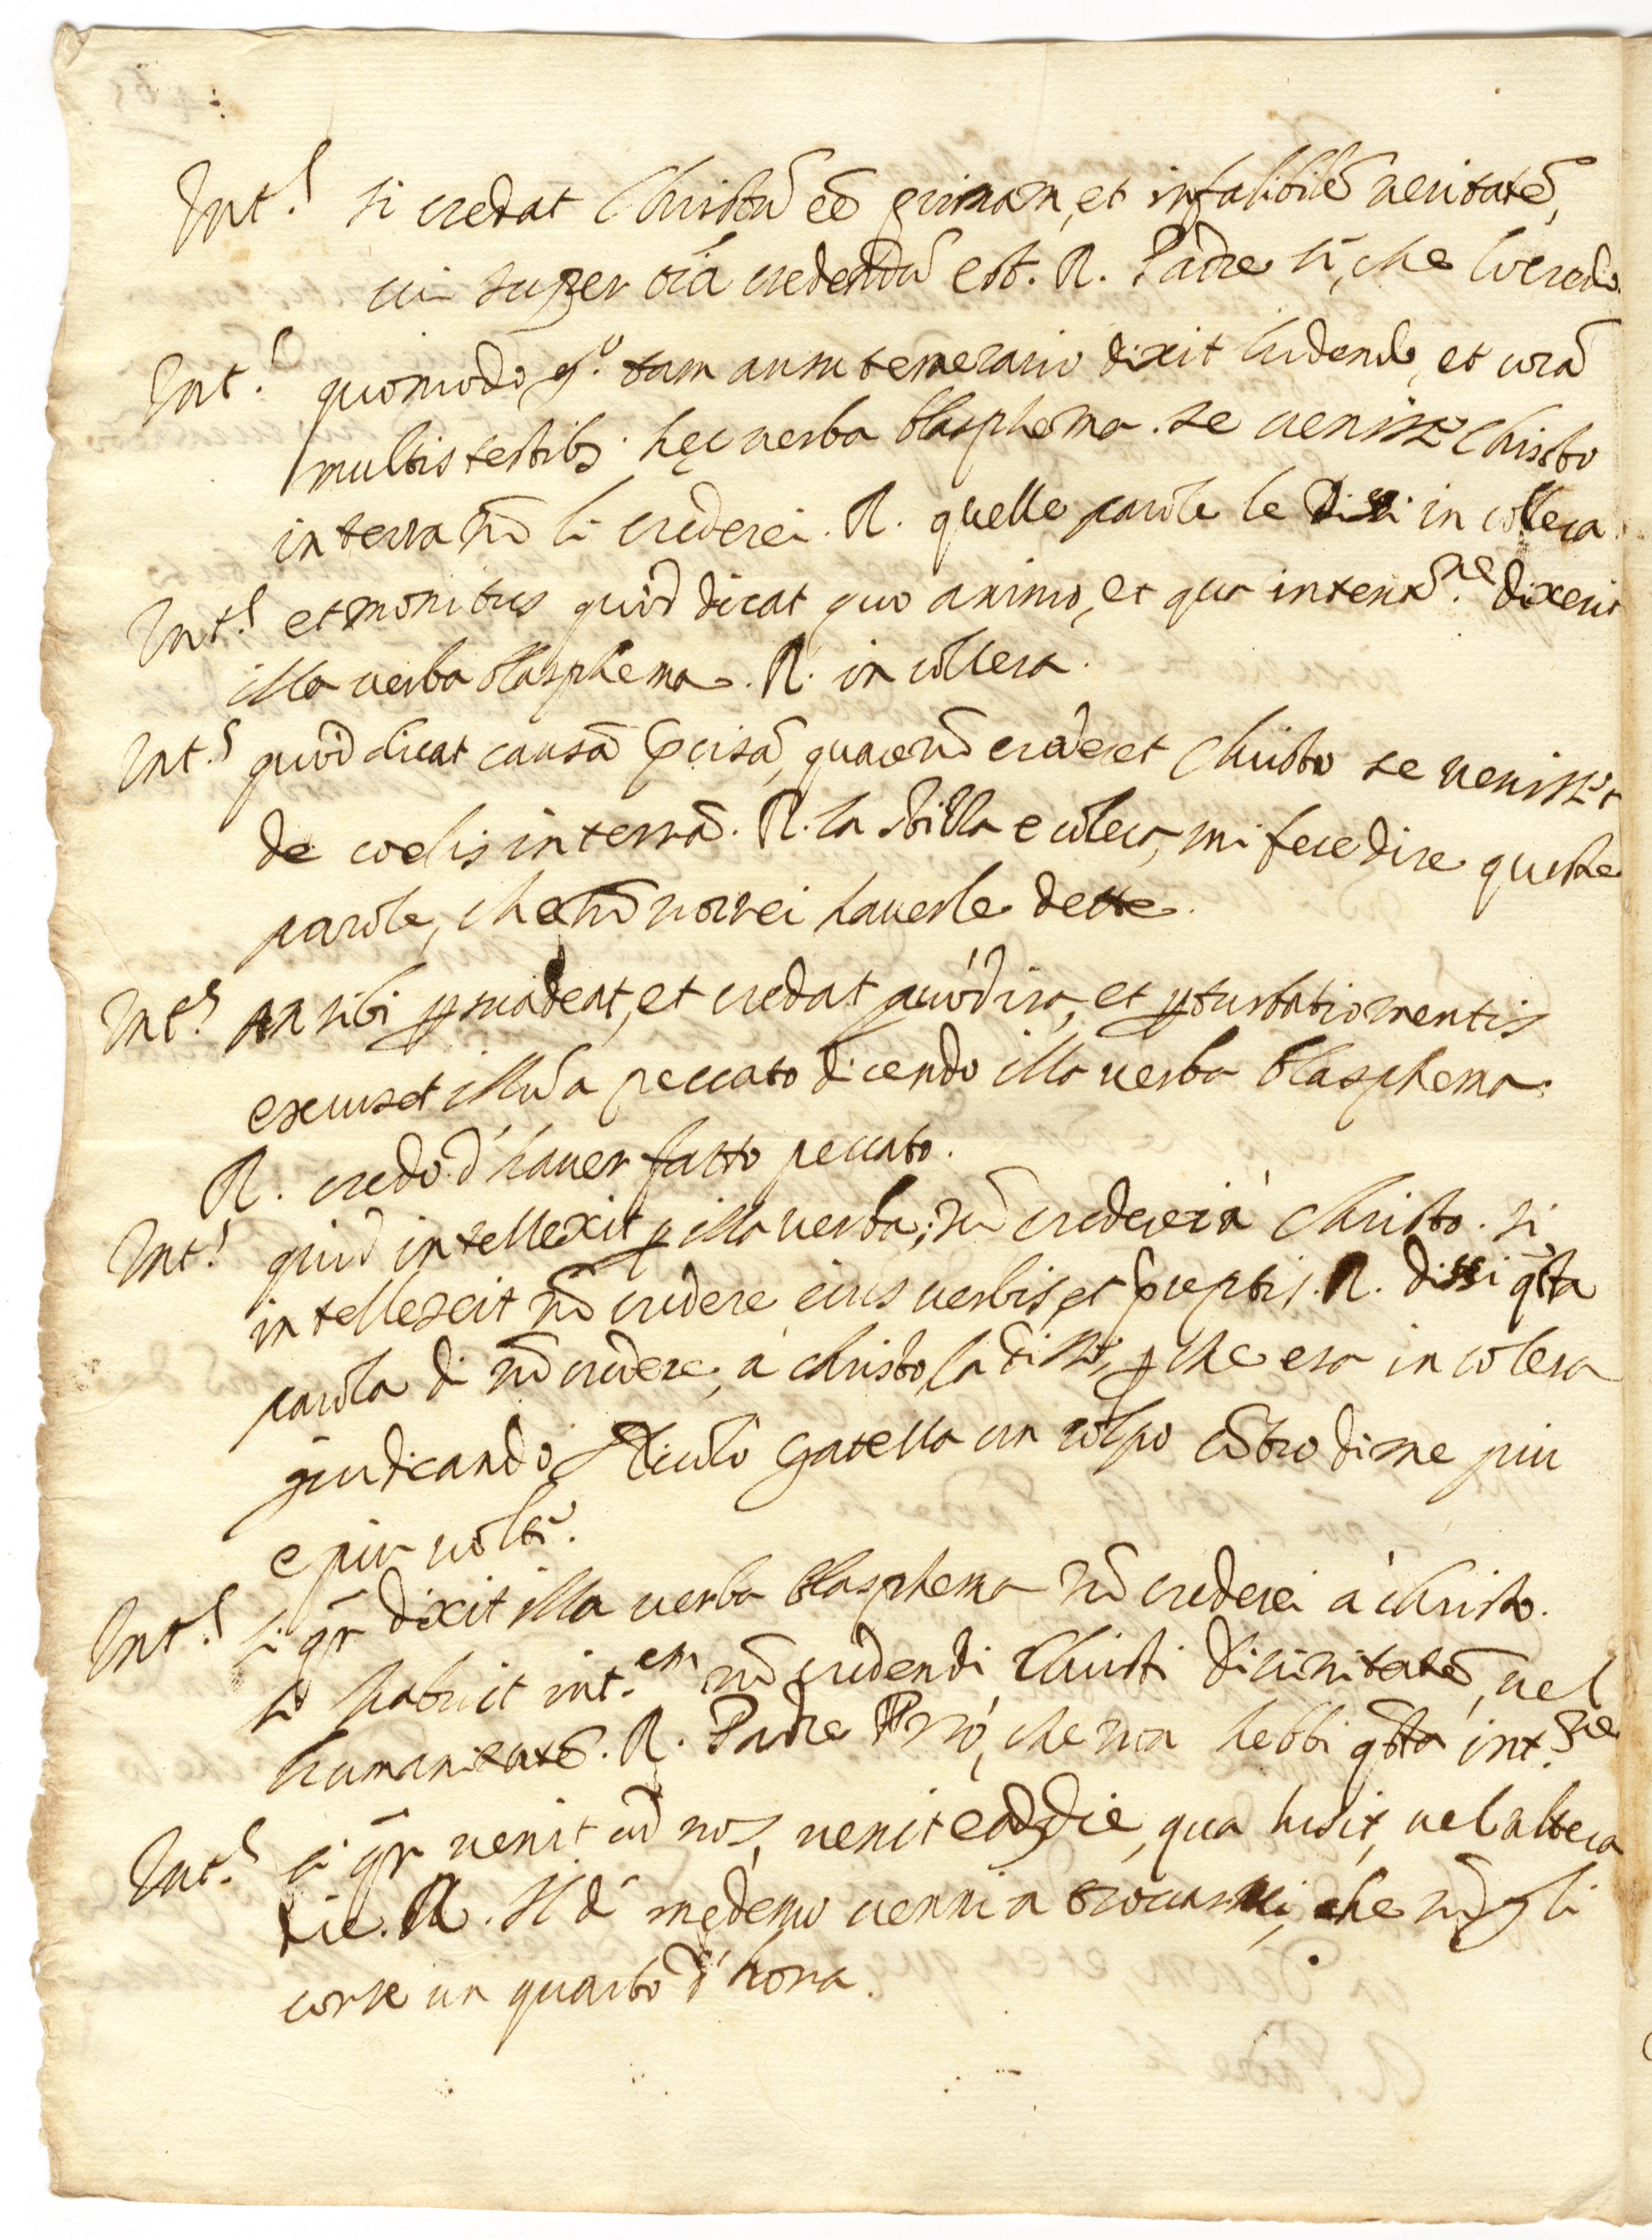 Int.s si credat Christũ eẽ primam, et infalibilẽ veritatẽ,
cui super oĩa credendũ est. R. Padre sì, che lo credo.
Int.s quomodo g.o tam ausu temerario dixit ludendo, et corã
multis testibs hęc verba blasphema. se veniss.e Christo
in terra nõ li crederei. R. quelle parole le dissi in collera.
Int.s et monitus quod dicat quo animo, et qua intent.ne dixerit
illa verba blasphema. R. in collera.
Int.s quod dicat causã p̃cisã, qua nõ crederet Christo se veniss.t
de coelis in terrã. R. la stilla e colera, mi fece dire queste
parole, che nõ vorrei haverle dette.
Int.s an sibi ꝑsuadeat, et credat quòd ira, et ꝑturbatio mentis
excuset illũ a peccato dicendo illa verba blasphema.
R. credo d'haver fatto peccato.
Int.s quid intellexit ꝑ illa verba; nõ crederei à Christo. si
intellexit nõ credere eius verbis, et p̃ceptis. R. dissi q̃sta
parola di nõ credere, à christo la dissi, ꝑche era in colera
giudicando Nicolò Gatella un colpo cõtro di me piu
e piu volte.
Int.s si qñ dixit illa verba blasphema nõ crederei à christo.
si habuit int.em nõ credendi Christi divinitatẽ, vel
humanitatẽ. R. Padre nò, che non hebbi q̃sta int.ne
Int.s si qñ venit ad nos, venit eadẽ die, qua lusit, vel altera
die. R. Il dì mędemo venni a trovarui, che nõ gli
corse un quarto d'hora.